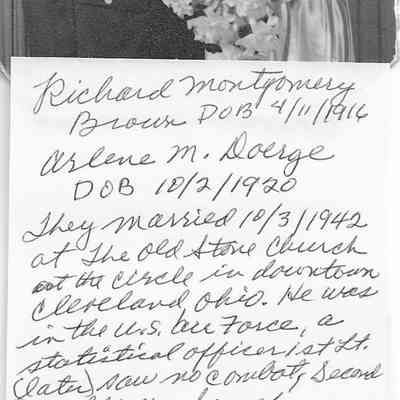 Richard Montgomery
Brown DOB 4/11/1916
Arlene M. Doerge
DOB 10/2/1920
They married 10/3/1942
at The Old Stone Church
at the circle in downtown
Cleveland Ohio. He was
in the U.S. Air Force, a
statistical officer 1st Lt.
(later) saw no combat, Second